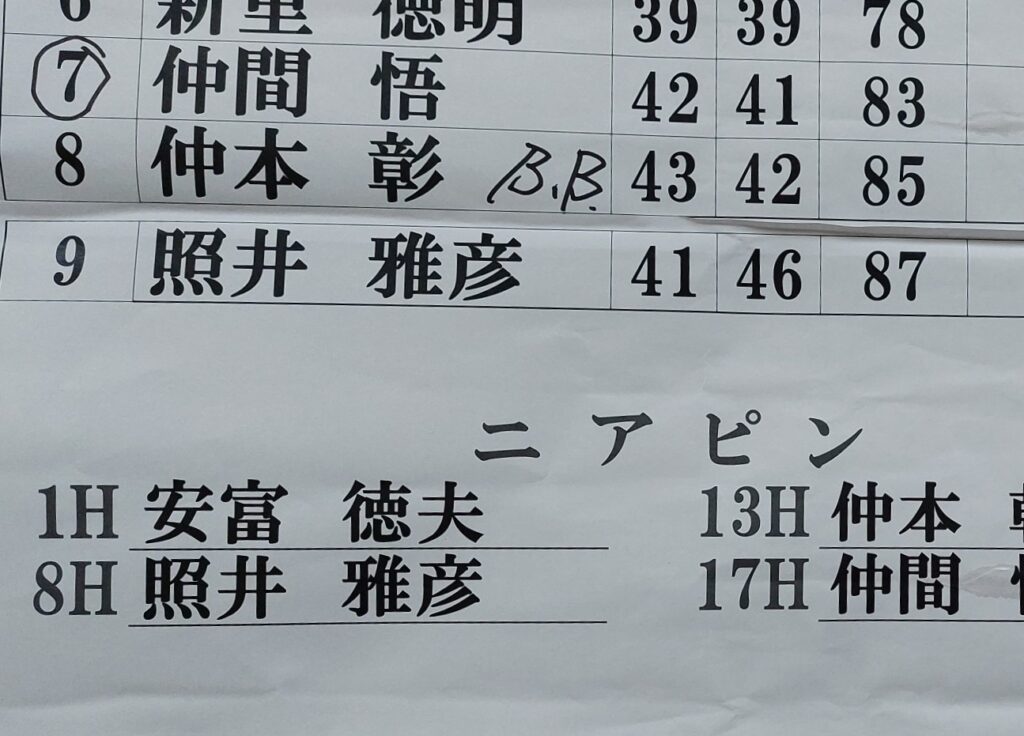 6 新里 徳明 39 39 78
7 仲間 悟 42 41 83
8 仲本 彰 B.B. 43 42 85
9 照井 雅彦 41 46 87
ニアピン
1H 安富 徳夫 13H 仲本
8H 照井 雅彦 17H 仲間